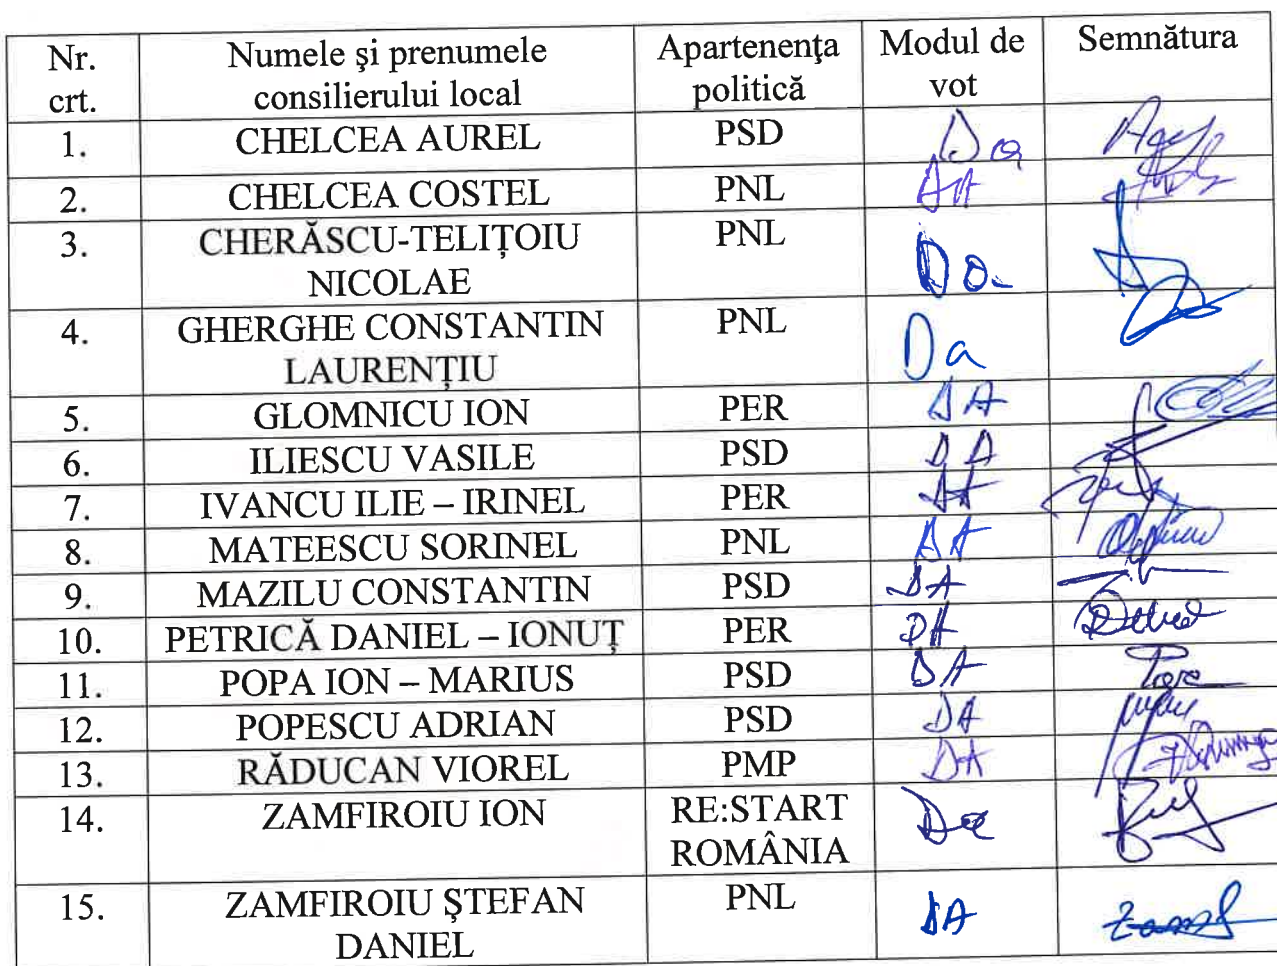 Nr. crt. Numele şi prenumele consilierului local Apartenenţa politică Modul de vot Semnătura
1. CHELCEA AUREL PSD Da
2. CHELCEA COSTEL PNL DA
3. CHERĂSCU-TELIȚOIU NICOLAE PNL Da
4. GHERGHE CONSTANTIN LAURENȚIU PNL Da
5. GLOMNICU ION PER DA
6. ILIESCU VASILE PSD DA
7. IVANCU ILIE – IRINEL PER DA
8. MATEESCU SORINEL PNL DA
9. MAZILU CONSTANTIN PSD DA
10. PETRICĂ DANIEL – IONUȚ PER DA
11. POPA ION – MARIUS PSD DA
12. POPESCU ADRIAN PSD DA
13. RĂDUCAN VIOREL PMP DA
14. ZAMFIROIU ION RE:START ROMÂNIA Da
15. ZAMFIROIU ŞTEFAN DANIEL PNL DA